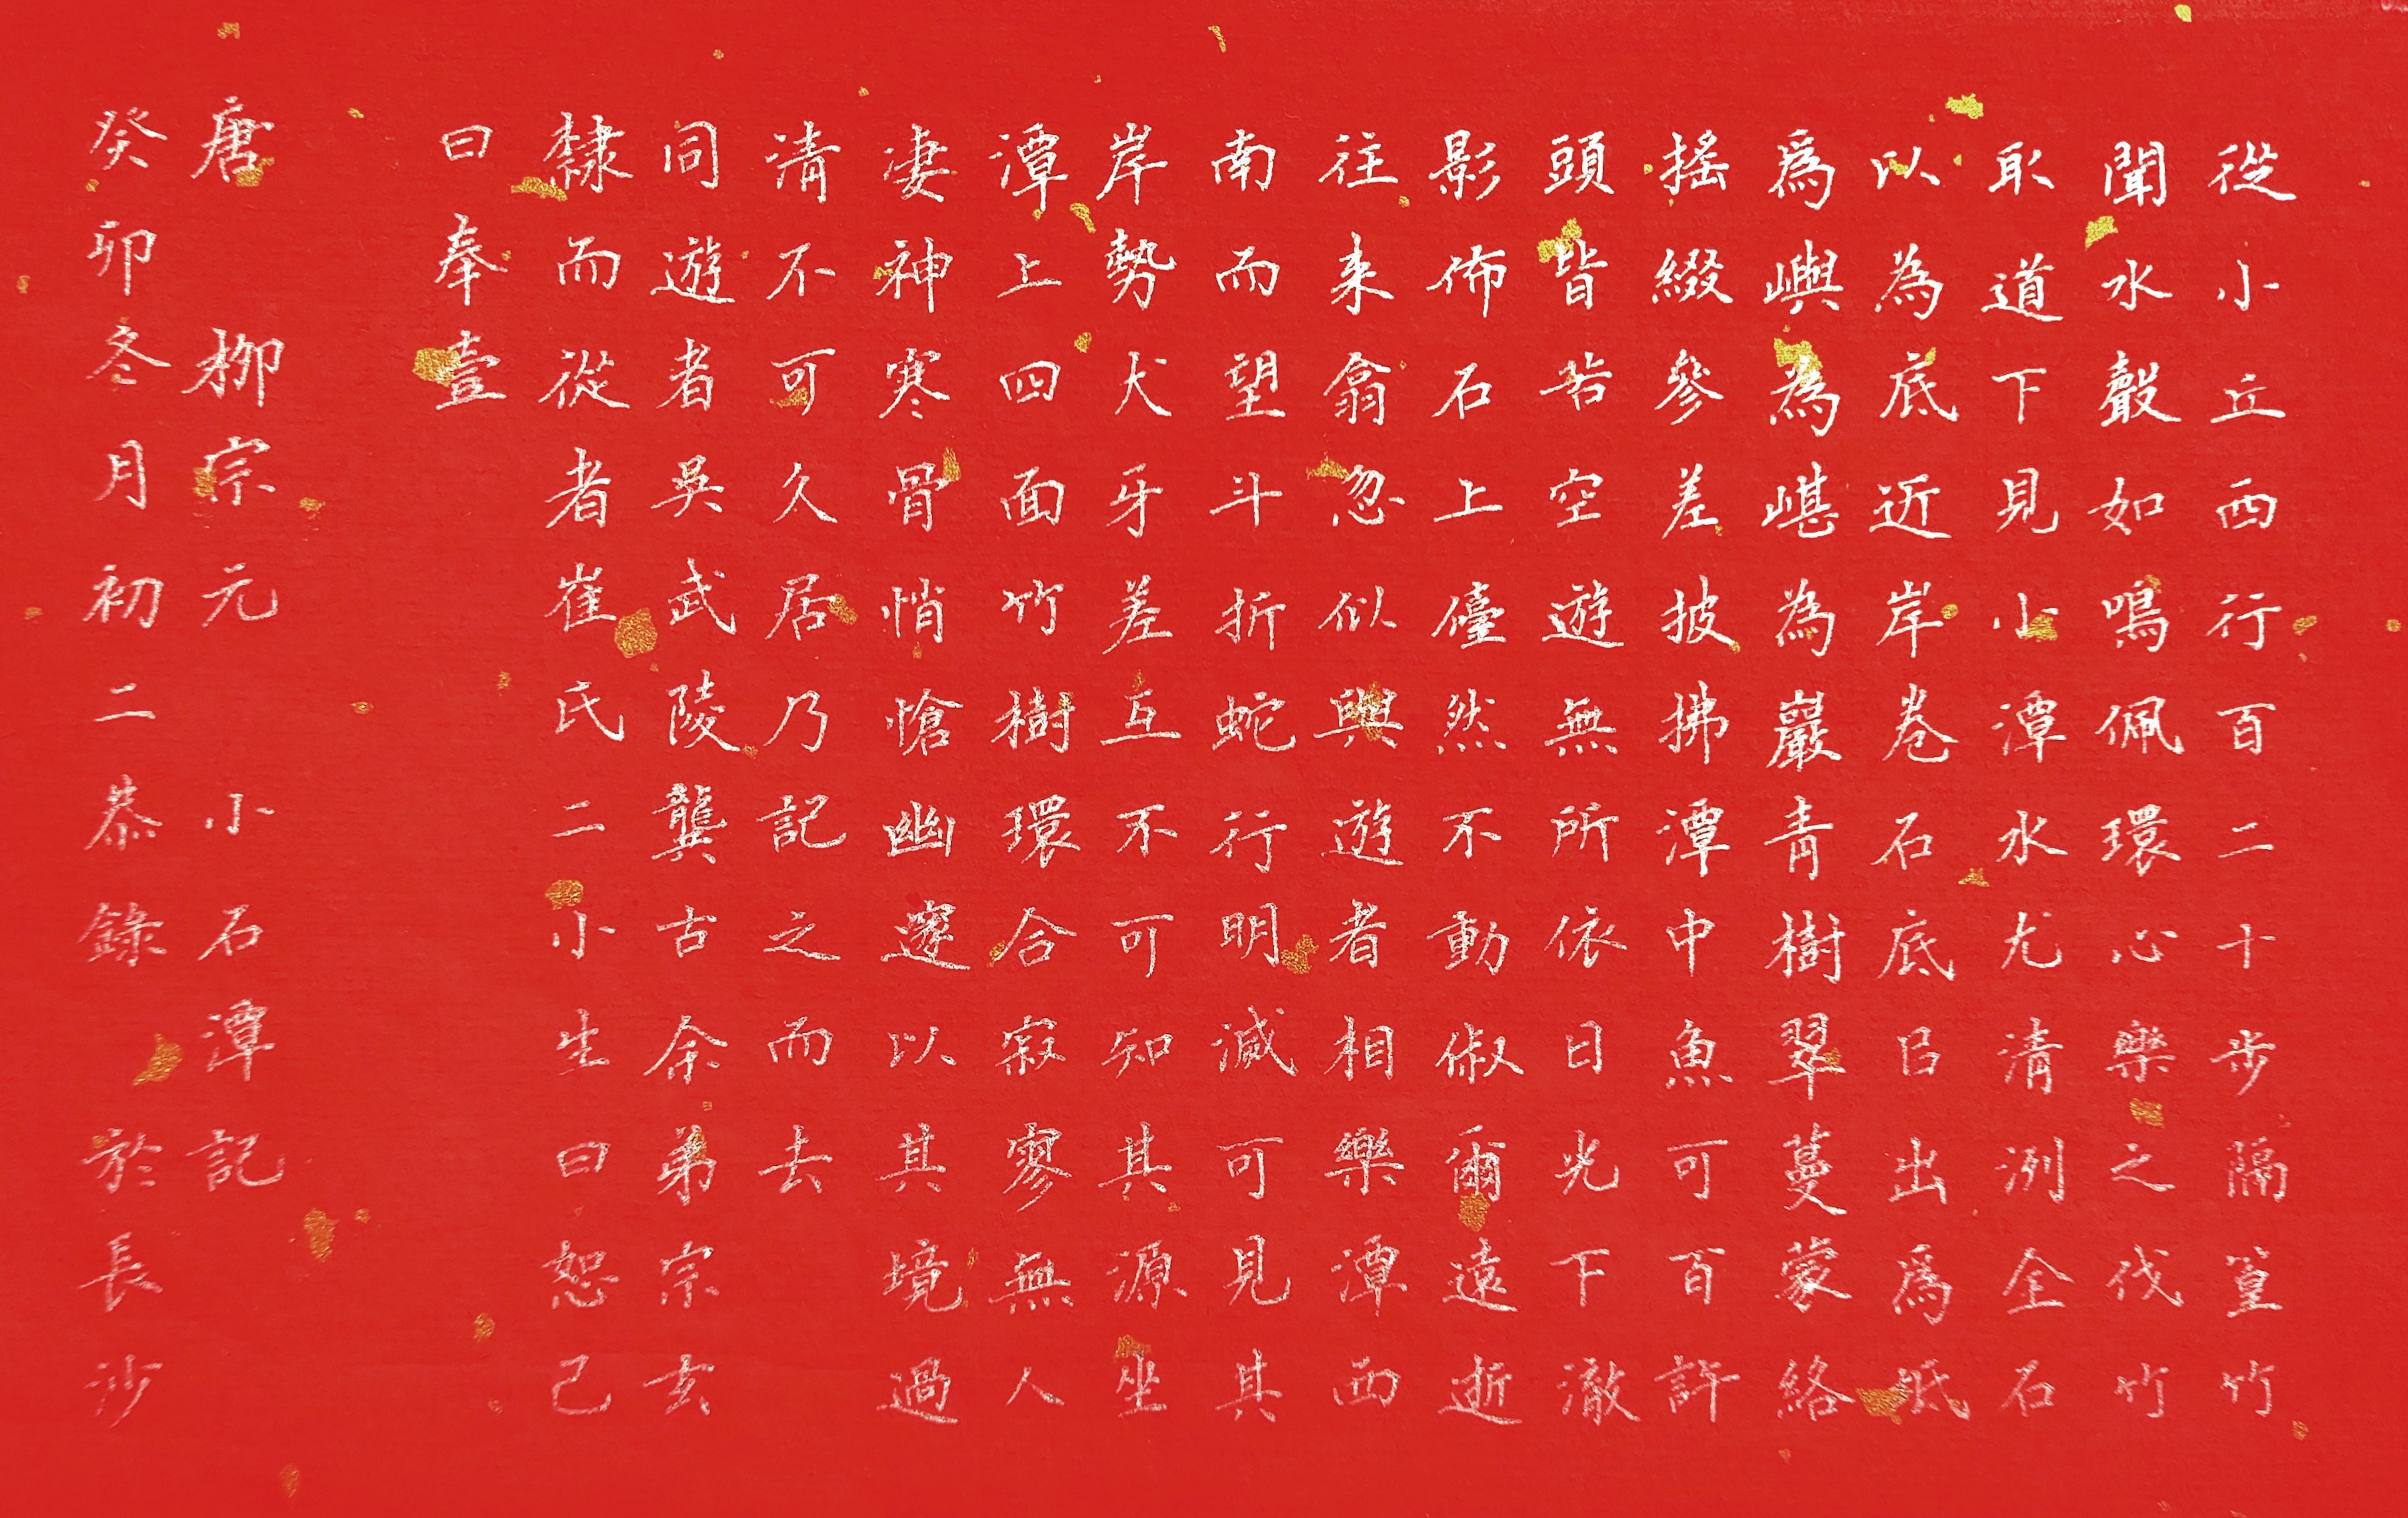 從小丘西行百二十步隔篁竹
聞水聲如鳴佩環心樂之伐竹
取道下見小潭水尤清洌全石
以為底近岸卷石底㠯出爲坻
爲嶼為嵁為巖青樹翠蔓蒙絡
搖綴參差披拂潭中魚可百許
頭皆若空遊無所依日光下澈
影佈石上儓然不動俶爾遠逝
往来翕忽似與遊者相樂潭西
南而望斗折蛇行明滅可見其
岸勢犬牙差互不可知其源坐
潭上四面竹樹環合寂寥無人
凄神寒骨悄愴幽邃以其境過
清不可久居乃記之而去
同遊者吳武陵龔古余弟宗玄
隸而從者崔氏二小生曰恕己
曰奉壹
唐 柳宗元 小石潭記
癸卯冬月初二恭錄 於長沙